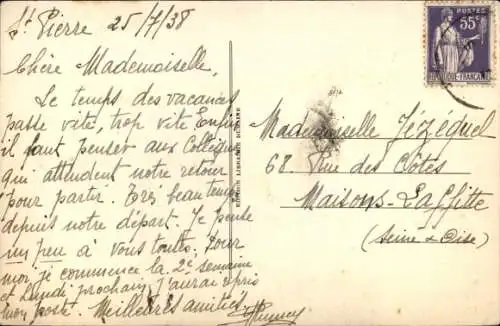 St Pierre 25/7/38
Chère Mademoiselle,
Le temps des vacances
passe vite, trop vite. Enfin
il faut penser aux Collègues
qui attendent notre retour
pour partir. Très beau temps
depuis notre départ. Je pense
un peu à vous toutes. Pour
moi je commence la 2e semaine
et Lundi prochain j'aurai repris
mon poste. Meilleures amitiés
Mademoiselle Jézéquel
68. Rue des Côtes
Maisons-Laffitte
(Seine & Oise)
POSTES
55c
REPUBLIQUE FRANÇAISE